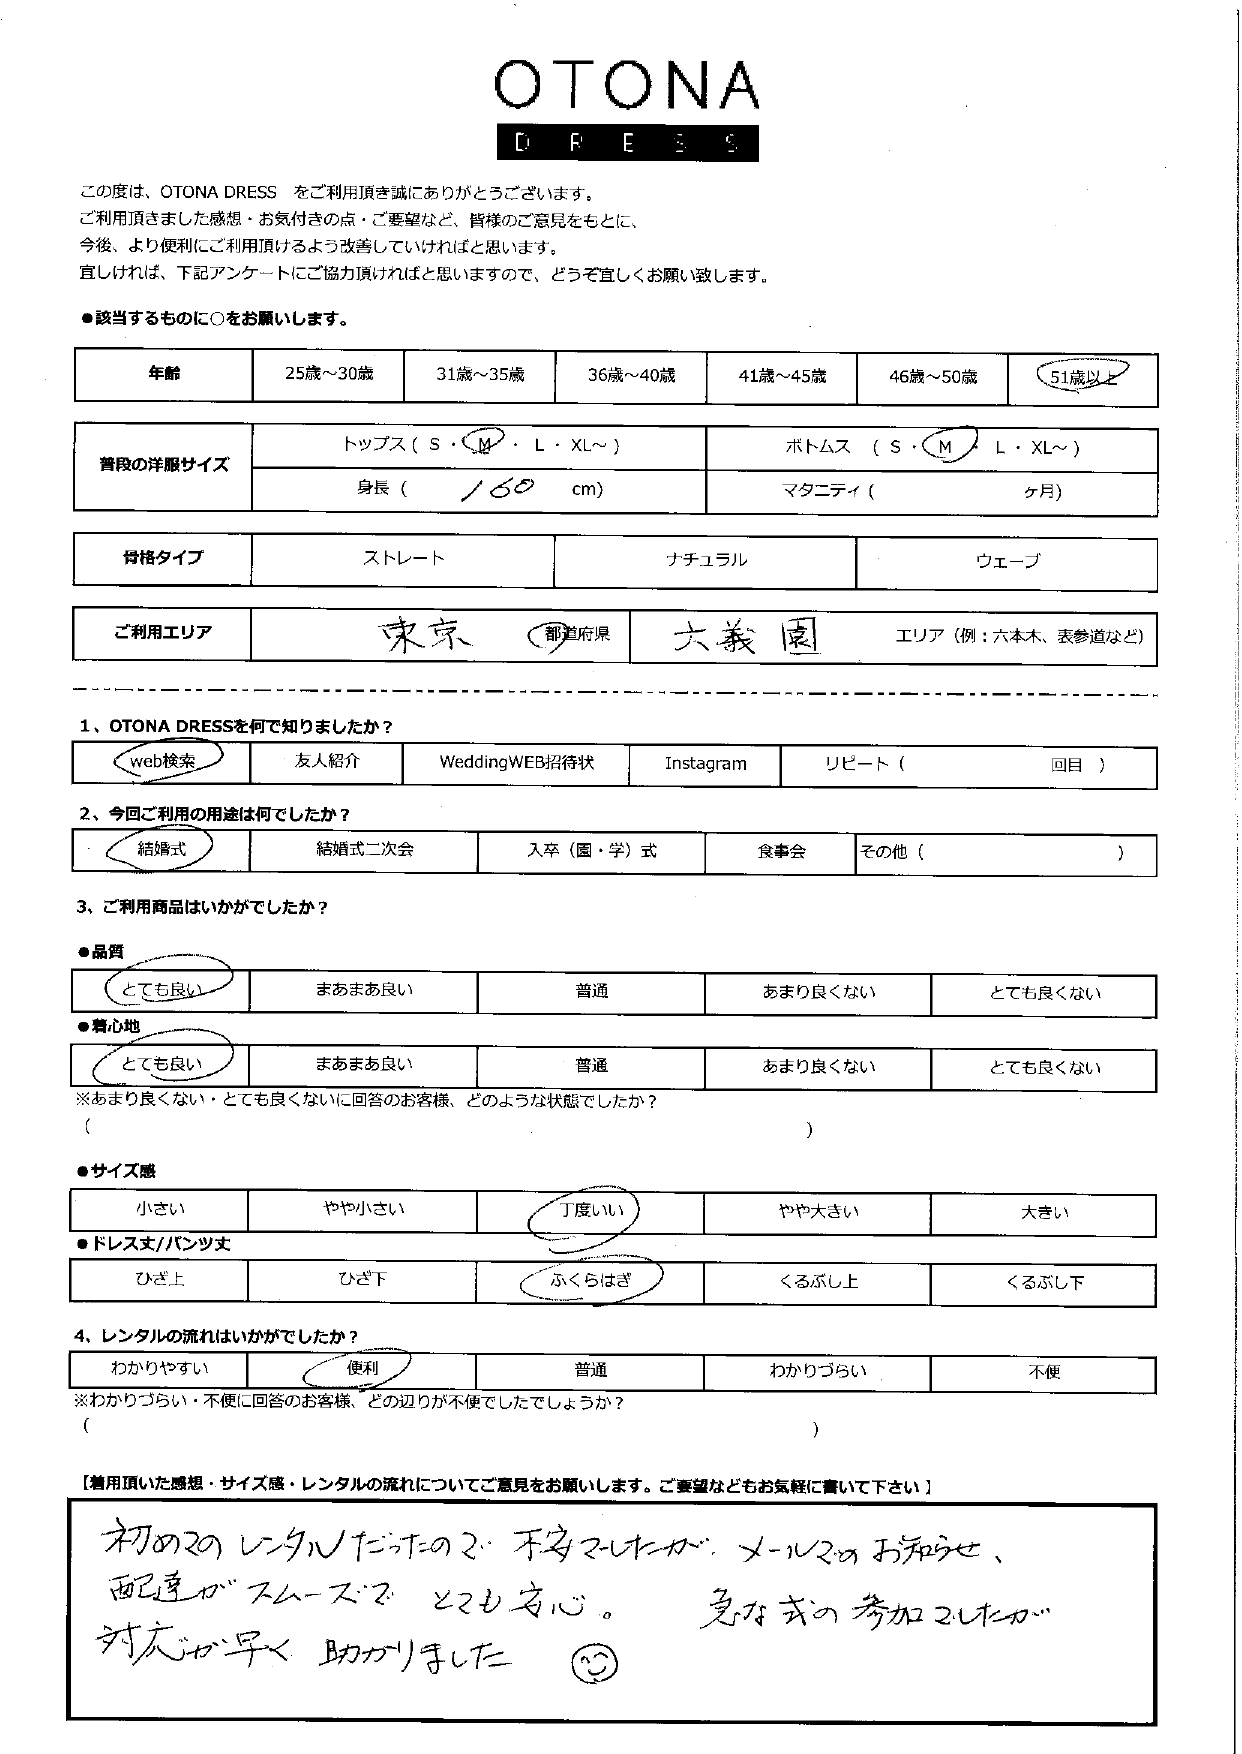 OTONA
DRESS
この度は、OTONA DRESS　をご利用頂き誠にありがとうございます。
ご利用頂きました感想・お気付きの点・ご要望など、皆様のご意見をもとに、
今後、より便利にご利用頂けるよう改善していければと思います。
宜しければ、下記アンケートにご協力頂ければと思いますので、どうぞ宜しくお願い致します。
●該当するものに○をお願いします。
年齢 25歳～30歳 31歳～35歳 36歳～40歳 41歳～45歳 46歳～50歳 51歳以上
普段の洋服サイズ トップス ( S ・ M ・ L ・ XL～ ) ボトムス ( S ・ M ・ L ・ XL～ )
身長 ( 160 cm) マタニティ ( ヶ月)
骨格タイプ ストレート ナチュラル ウェーブ
ご利用エリア 東京 都道府県 六義園 エリア（例：六本木、表参道など）
1、OTONA DRESSを何で知りましたか？
web検索 友人紹介 WeddingWEB招待状 Instagram リピート ( 回目 )
2、今回ご利用の用途は何でしたか？
結婚式 結婚式二次会 入卒（園・学）式 食事会 その他 ( )
3、ご利用商品はいかがでしたか？
●品質
とても良い まあまあ良い 普通 あまり良くない とても良くない
●着心地
とても良い まあまあ良い 普通 あまり良くない とても良くない
※あまり良くない・とても良くないに回答のお客様、どのような状態でしたか？
( )
●サイズ感
小さい やや小さい 丁度いい やや大きい 大きい
●ドレス丈/パンツ丈
ひざ上 ひざ下 ふくらはぎ くるぶし上 くるぶし下
4、レンタルの流れはいかがでしたか？
わかりやすい 便利 普通 わかりづらい 不便
※わかりづらい・不便に回答のお客様、どの辺りが不便でしたでしょうか？
( )
【着用頂いた感想・サイズ感・レンタルの流れについてご意見をお願いします。ご要望などもお気軽に書いて下さい】
初めてのレンタルだったので 不安でしたが、メールでのお知らせ、
配達がスムーズで とても安心。 急な式の参加でしたが
対応が早く 助かりました